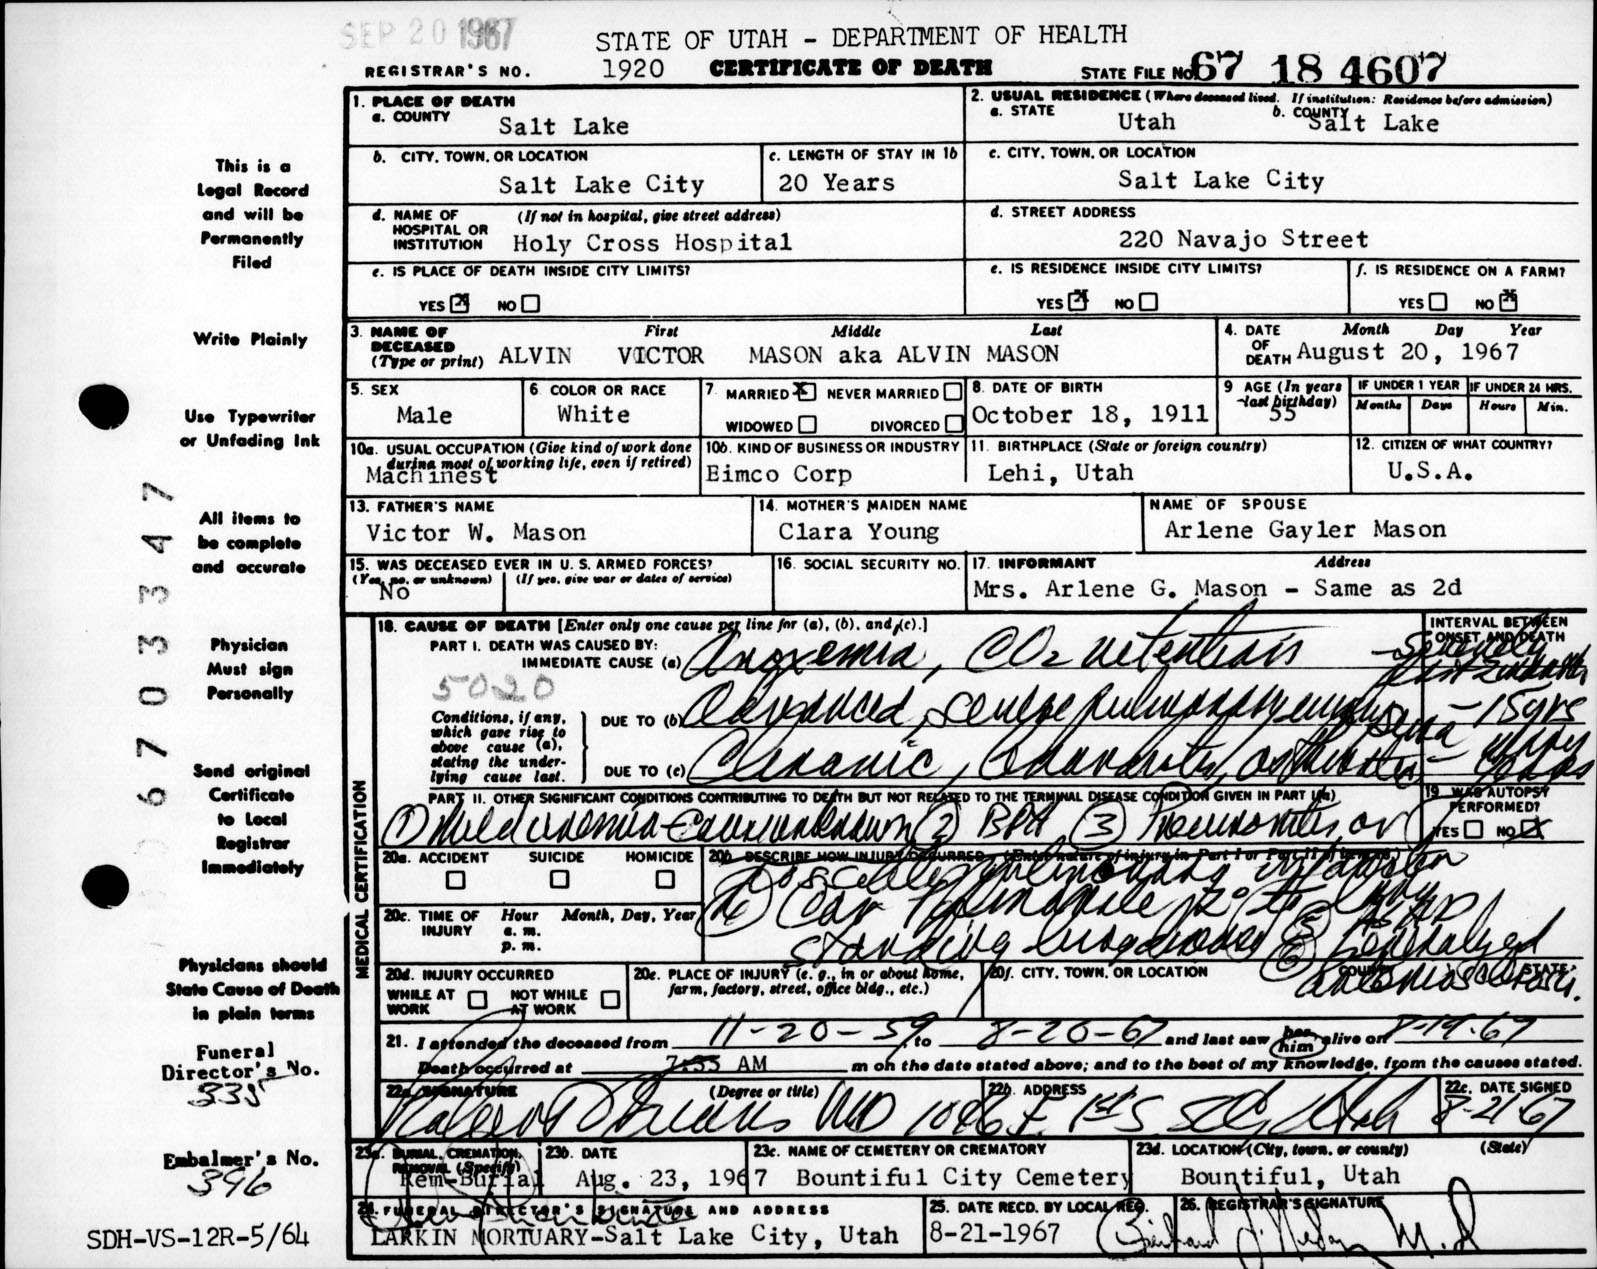 SEP 20 1967
STATE OF UTAH - DEPARTMENT OF HEALTH
REGISTRAR'S NO. 1920 CERTIFICATE OF DEATH STATE FILE NO. 67 18 4607
1. PLACE OF DEATH
a. COUNTY Salt Lake
2. USUAL RESIDENCE (Where deceased lived. If institution: Residence before admission)
a. STATE Utah b. COUNTY Salt Lake
b. CITY, TOWN, OR LOCATION Salt Lake City
c. LENGTH OF STAY IN 1b 20 Years
c. CITY, TOWN, OR LOCATION Salt Lake City
d. NAME OF HOSPITAL OR INSTITUTION (If not in hospital, give street address) Holy Cross Hospital
d. STREET ADDRESS 220 Navajo Street
e. IS PLACE OF DEATH INSIDE CITY LIMITS? YES X NO
e. IS RESIDENCE INSIDE CITY LIMITS? YES X NO
f. IS RESIDENCE ON A FARM? YES NO X
3. NAME OF DECEASED (Type or print) First Middle Last
ALVIN VICTOR MASON aka ALVIN MASON
4. DATE OF DEATH Month Day Year August 20, 1967
5. SEX Male
6. COLOR OR RACE White
7. MARRIED X NEVER MARRIED WIDOWED DIVORCED
8. DATE OF BIRTH October 18, 1911
9 AGE (In years last birthday) 55
IF UNDER 1 YEAR Months Days
IF UNDER 24 HRS. Hours Min.
10a. USUAL OCCUPATION (Give kind of work done during most of working life, even if retired) Machinest
10b. KIND OF BUSINESS OR INDUSTRY Eimco Corp
11. BIRTHPLACE (State or foreign country) Lehi, Utah
12. CITIZEN OF WHAT COUNTRY? U.S.A.
13. FATHER'S NAME Victor W. Mason
14. MOTHER'S MAIDEN NAME Clara Young
NAME OF SPOUSE Arlene Gayler Mason
15. WAS DECEASED EVER IN U. S. ARMED FORCES? (Yes, no, or unknown) (If yes, give war or dates of service) No
16. SOCIAL SECURITY NO.
17. INFORMANT Address Mrs. Arlene G. Mason - Same as 2d
MEDICAL CERTIFICATION
18. CAUSE OF DEATH [Enter only one cause per line for (a), (b), and (c).]
INTERVAL BETWEEN ONSET AND DEATH
PART I. DEATH WAS CAUSED BY:
IMMEDIATE CAUSE (a) Anoxemia, CO2 retention
5020
Conditions, if any, which gave rise to above cause (a), stating the underlying cause last.
DUE TO (b) Advanced, severe pulmonary emphysema - 15 yrs
DUE TO (c) Chronic, many years
PART II. OTHER SIGNIFICANT CONDITIONS CONTRIBUTING TO DEATH BUT NOT RELATED TO THE TERMINAL DISEASE CONDITION GIVEN IN PART I(a)
(1) Mild anemia - cause unknown (2) BPH (3) Pneumonitis, or
possible pulmonary
(4) Cor Pulmonale 2° to long
standing lung disease (6) Generalized
arteriosclerosis.
19. WAS AUTOPSY PERFORMED? YES NO X
20a. ACCIDENT SUICIDE HOMICIDE
20b. DESCRIBE HOW INJURY OCCURRED. (Enter nature of injury in Part I or Part II of item 18.)
20c. TIME OF INJURY Hour a. m. p. m. Month, Day, Year
20d. INJURY OCCURRED WHILE AT WORK NOT WHILE AT WORK
20e. PLACE OF INJURY (e. g., in or about home, farm, factory, street, office bldg., etc.)
20f. CITY, TOWN, OR LOCATION COUNTY STATE
21. I attended the deceased from 11-20-59 to 8-20-67 and last saw her him alive on 8-19-67
Death occurred at 7:55 AM m on the date stated above; and to the best of my knowledge, from the causes stated.
22a. SIGNATURE (Degree or title) MD
22b. ADDRESS 1046 E. 1st S. SLC, Utah
22c. DATE SIGNED 8-21-67
23a. BURIAL, CREMATION, REMOVAL (Specify) Rem-Burial
23b. DATE Aug. 23, 1967
23c. NAME OF CEMETERY OR CREMATORY Bountiful City Cemetery
23d. LOCATION (City, town, or county) (State) Bountiful, Utah
24. FUNERAL DIRECTOR'S SIGNATURE AND ADDRESS
LARKIN MORTUARY-Salt Lake City, Utah
25. DATE RECD. BY LOCAL REG. 8-21-1967
26. REGISTRAR'S SIGNATURE M.D
This is a
Legal Record
and will be
Permanently
Filed
Write Plainly
Use Typewriter
or Unfading Ink
All items to
be complete
and accurate
Physician
Must sign
Personally
Send original
Certificate
to Local
Registrar
Immediately
Physicians should
State Cause of Death
in plain terms
Funeral
Director's No.
335
Embalmer's No.
396
SDH-VS-12R-5/64
6703347